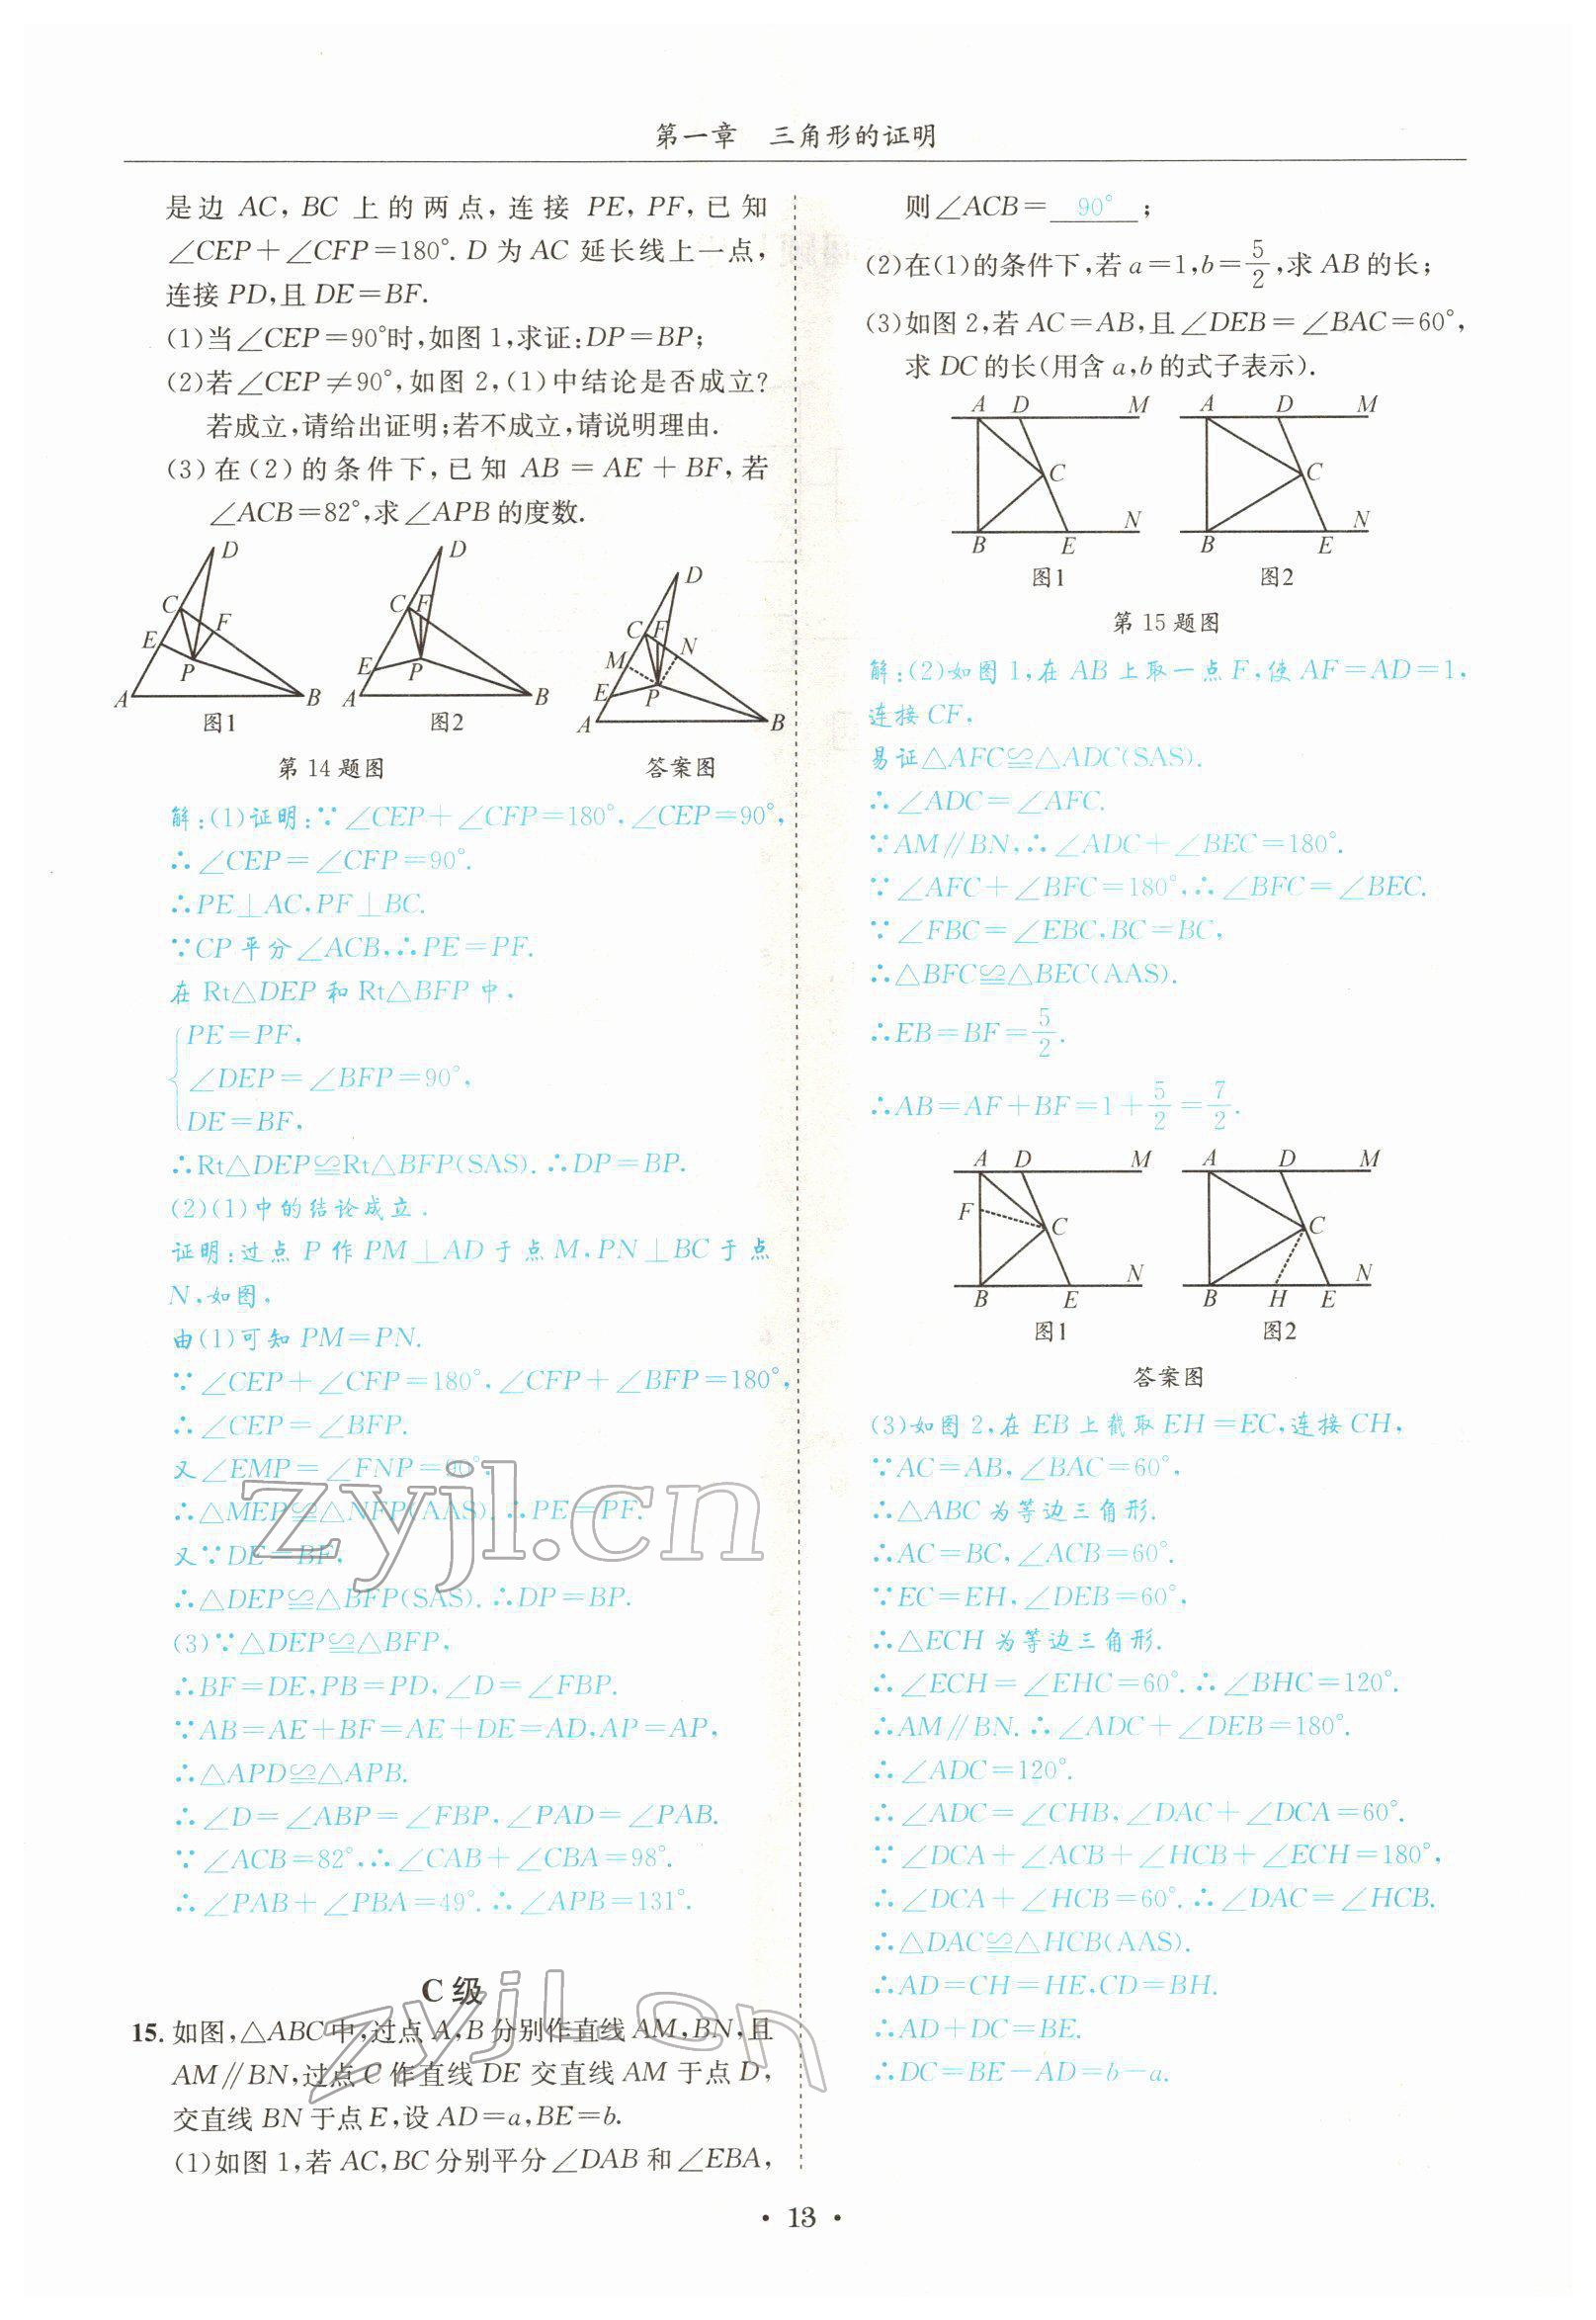 第一章　三角形的证明
是边 AC, BC 上的两点,连接 PE, PF,已知
∠CEP+∠CFP=180°. D 为 AC 延长线上一点,
连接 PD,且 DE=BF.
(1)当∠CEP=90°时,如图1,求证:DP=BP;
(2)若∠CEP≠90°,如图2,(1)中结论是否成立?
若成立,请给出证明;若不成立,请说明理由.
(3)在(2)的条件下,已知 AB=AE+BF,若
∠ACB=82°,求∠APB的度数.
D
C
F
E
P
A
B
图1
D
C
F
E
P
A
B
图2
D
C
F
N
M
E
P
A
B
第14题图
答案图
解:(1)证明:∵∠CEP+∠CFP=180°,∠CEP=90°,
∴∠CEP=∠CFP=90°.
∴PE⊥AC,PF⊥BC.
∵CP平分∠ACB,∴PE=PF.
在 Rt△DEP 和 Rt△BFP 中,
PE=PF,
∠DEP=∠BFP=90°,
DE=BF,
∴Rt△DEP≌Rt△BFP(SAS).∴DP=BP.
(2)(1)中的结论成立.
证明:过点 P 作 PM⊥AD于点 M,PN⊥BC于点
N,如图,
由(1)可知 PM=PN.
∵∠CEP+∠CFP=180°,∠CFP+∠BFP=180°,
∴∠CEP=∠BFP.
又∠EMP=∠FNP=90°,
∴△MEP≌△NFP(AAS).∴PE=PF.
又∵DE=BF,
∴△DEP≌△BFP(SAS).∴DP=BP.
(3)∵△DEP≌△BFP,
∴BF=DE,PB=PD,∠D=∠FBP.
∵AB=AE+BF=AE+DE=AD,AP=AP,
∴△APD≌△APB.
∴∠D=∠ABP=∠FBP,∠PAD=∠PAB.
∵∠ACB=82°,∴∠CAB+∠CBA=98°.
∴∠PAB+∠PBA=49°.∴∠APB=131°.
C级
15.如图,△ABC中,过点A,B分别作直线AM,BN,且
AM∥BN,过点C作直线DE交直线AM于点D,
交直线BN于点E,设AD=a,BE=b.
(1)如图1,若AC,BC分别平分∠DAB和∠EBA,
则∠ACB= 90° ;
(2)在(1)的条件下,若a=1,b=5/2,求AB的长;
(3)如图2,若AC=AB,且∠DEB=∠BAC=60°,
求DC的长(用含a,b的式子表示).
A D M
C
N
B E
图1
A D M
C
N
B E
图2
第15题图
解:(2)如图1,在AB上取一点F,使AF=AD=1,
连接CF,
易证△AFC≌△ADC(SAS).
∴∠ADC=∠AFC.
∵AM∥BN,∴∠ADC+∠BEC=180°.
∵∠AFC+∠BFC=180°,∴∠BFC=∠BEC.
∵∠FBC=∠EBC,BC=BC,
∴△BFC≌△BEC(AAS).
∴EB=BF=5/2.
∴AB=AF+BF=1+5/2=7/2.
A D M
F
C
N
B E
图1
A D M
C
N
B H E
图2
答案图
(3)如图2,在EB上截取EH=EC,连接CH,
∵AC=AB,∠BAC=60°,
∴△ABC为等边三角形.
∴AC=BC,∠ACB=60°.
∵EC=EH,∠DEB=60°,
∴△ECH为等边三角形.
∴∠ECH=∠EHC=60°.∴∠BHC=120°.
∴AM∥BN.∴∠ADC+∠DEB=180°.
∴∠ADC=120°.
∴∠ADC=∠CHB,∠DAC+∠DCA=60°.
∵∠DCA+∠ACB+∠HCB+∠ECH=180°,
∴∠DCA+∠HCB=60°.∴∠DAC=∠HCB.
∴△DAC≌△HCB(AAS).
∴AD=CH=HE,CD=BH.
∴AD+DC=BE.
∴DC=BE-AD=b-a.
• 13 •
zyjl.cn
zyjl.cn